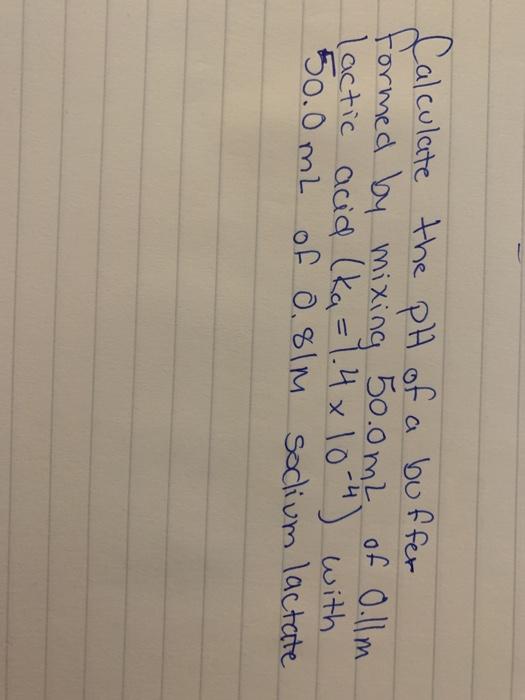 Calculate the pH of a buffer
formed by mixing 50.0mL of 0.11m
lactic acid (ka = 1.4 x 10⁻⁴) with
50.0mL of 0.81M sodium lactate